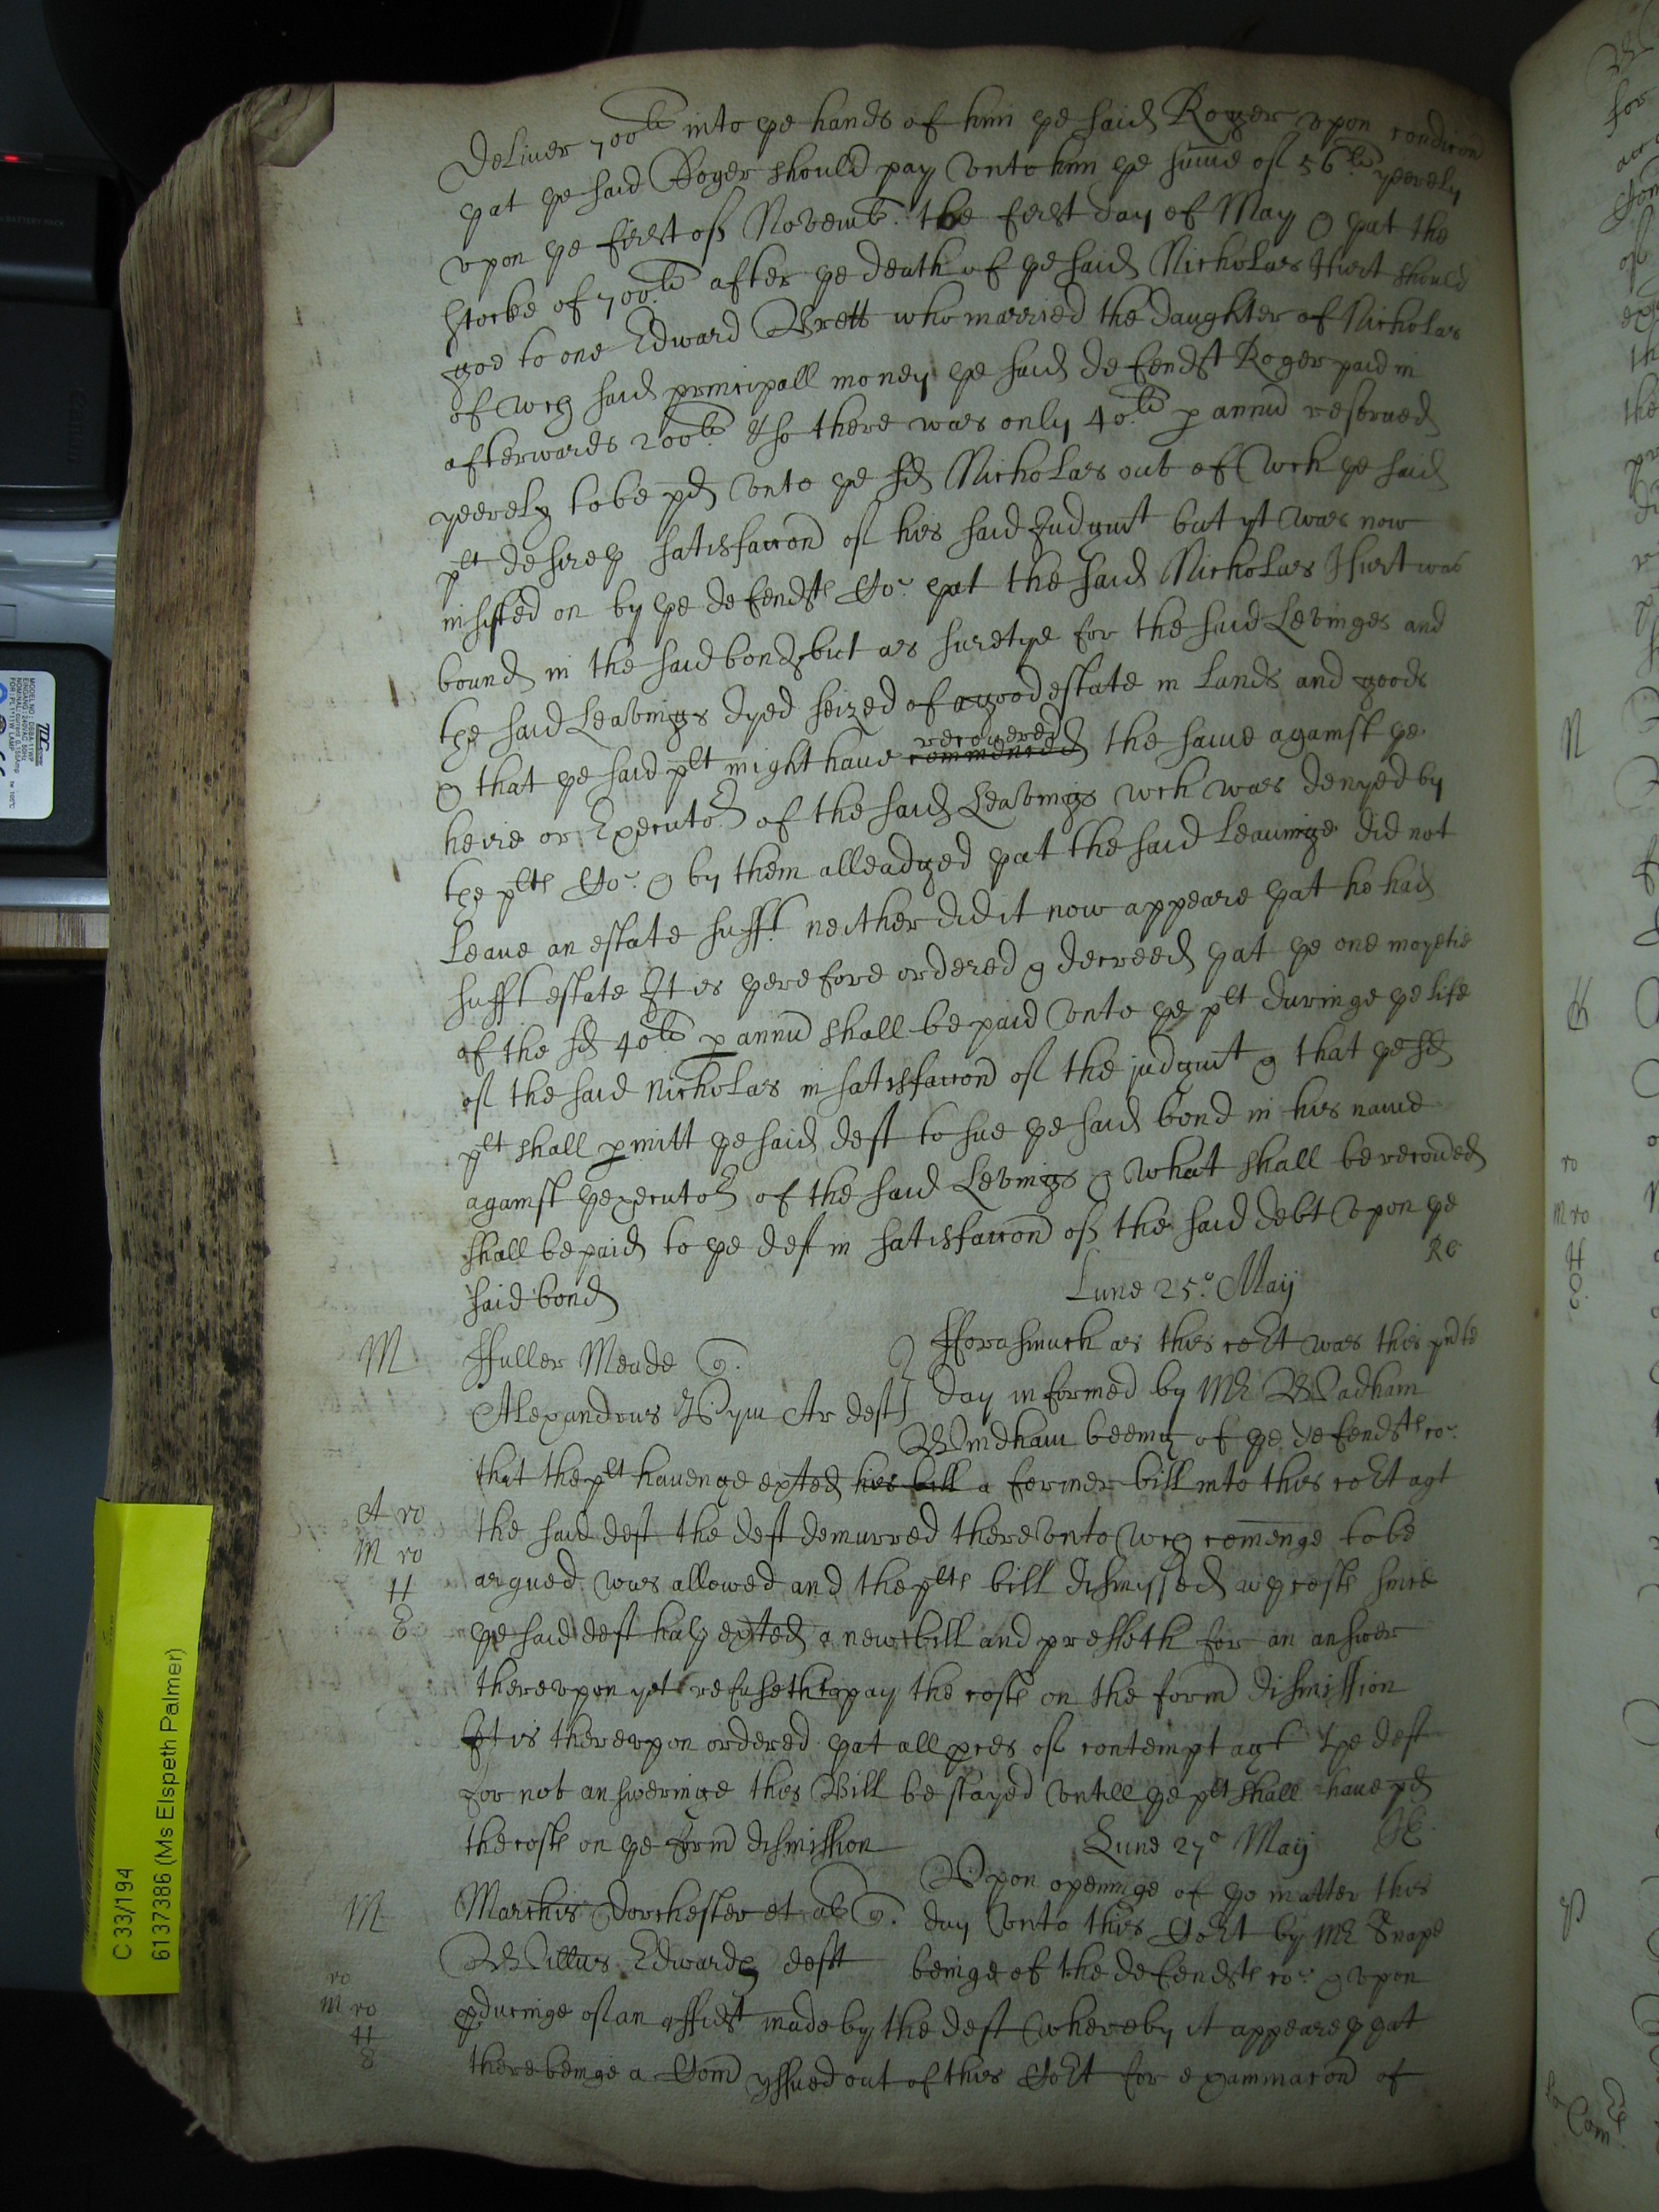 Deliuer 700li into ye hands of him ye said Roger vpon condicon
yat ye said Roger should pay vnto him ye summe of 56li yeerely
vpon ye first of Novemb: the first day of May & yat the
stocke of 700li after ye death of ye said Nicholas Hurt should
goe to one Edward Brett who married the daughter of Nicholas
of wch said principall money ye said defendt Roger paid in
afterwards 200li & so there was only 40li p annu reserued
yeerely to be pd vnto ye sd Nicholas out of wch ye said
plt desireth satisfaccon of his said Judgmt but yt was now
insisted on by ye defendts Co: yat the said Nicholas Hurt was
bound in the said bond but as suretye for the said Levinges and
the said Leavings dyed seized of a good estate in lands and goods
& that ye said plt might haue commenced recovered the same against ye
heire or Executor of the said Leavings wch was denyed by
the plts Co: & by them alleadged yat the said Leauinge did not
Leaue an estate sufft neither did it now appeare yat he had
sufft estate It is yerefore ordered & decreed yat ye one moyetie
of the sd 40li p annu shall be paid vnto ye plt duringe ye life
of the said Nicholas in satisfaccon of the judgmt & that ye sd
plt shall pmitt ye said deft to sue ye said bond in his name
against ye executor of the said Levings & what shall be recoued
shall be paid to ye deft in satisfaccon of the said debt vpon ye
said bond
RC
Lune 25o May
M
ffuller Meade Q.
Alexandrus Ar deft
fforasmuch as this cort was this pnte
day informed by Mr Wadham
Windham beeing of ye defendts co:
that the plt hauenge exted his bill a former bill into this cort agt
A ro
the said deft the deft demurred therevnto wch comenge to be
M ro
argued was allowed and the plts bill dismissed wth costs since
H
E
ye said deft hath exted a new bill and presseth for an answer
therevpon yet refuseth to pay the costs on the form dismission
It is therevpon ordered yat all pces of contempt agt the deft
for not answeringe this Bill be stayed vntill ye plt shall haue pd
the costs on ye form dismission
Lune 27o May
M
Marchis Dorchester et al Q.
Willus Edwards deft
Vpon openinge of ye matter this
day vnto this Cort by Mr Snape
beinge of the defendts co: & vpon
ro
M ro
H
E
pducinge of an affidt made by the deft whereby it appeareth yat
there beinge a Com yssued out of this Cort for examinacon of
C 33/194
6137386 (Ms Elspeth Palmer)
N
ro
M ro
H
E